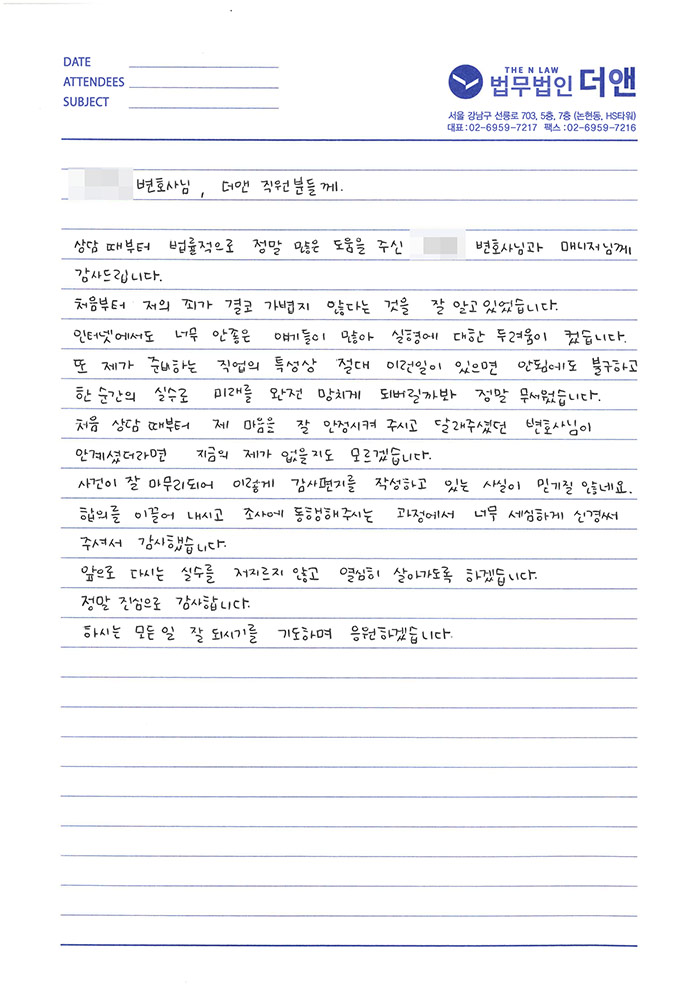 DATE
ATTENDEES
SUBJECT
THE N LAW
법무법인 더앤
서울 강남구 선릉로 703, 5층, 7층 (논현동, HS타워)
대표:02-6959-7217 팩스:02-6959-7216
변호사님, 더앤 직원분들께.
상담 때부터 법률적으로 정말 많은 도움을 주신 변호사님과 매니저님께
감사드립니다.
처음부터 저의 죄가 결코 가볍지 않다는 것을 잘 알고있었습니다.
인터넷에서도 너무 안좋은 얘기들이 많아 실형에 대한 두려움이 컸습니다.
또 제가 준비하는 직업의 특성상 절대 이런일이 있으면 안됨에도 불구하고
한 순간의 실수로 미래를 완전 망치게 되버릴까봐 정말 무서웠습니다.
처음 상담 때부터 제 마음을 잘 안정시켜 주시고 달래주셨던 변호사님이
안계셨더라면 지금의 제가 없을지도 모르겠습니다.
사건이 잘 마무리되어 이렇게 감사편지를 작성하고 있는 사실이 믿기질 않네요.
합의를 이끌어 내시고 조사에 동행해주시는 과정에서 너무 세심하게 신경써
주셔서 감사했습니다.
앞으로 다시는 실수를 저지르지 않고 열심히 살아가도록 하겠습니다.
정말 진심으로 감사합니다.
하시는 모든일 잘 되시기를 기도하며 응원하겠습니다.